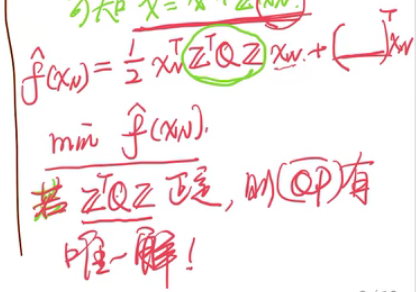 可知 x = x* + Z x_N
f̂(x_N) = ½ x_Nᵀ ZᵀQZ x_N + (__)ᵀ x_N
min f̂(x_N).
若 ZᵀQZ 正定, 则(QP)有
唯一解!